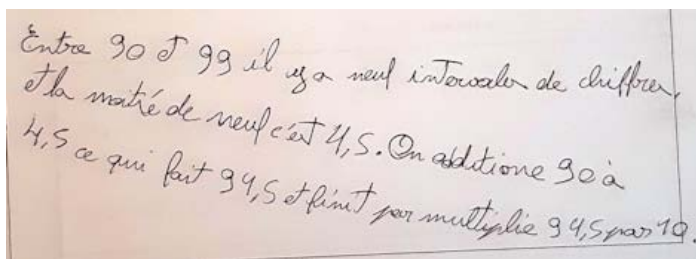 Entre 90 et 99 il y a neuf intervales de chiffres,
et la moitié de neuf c'est 4,5. On additione 90 à
4,5 ce qui fait 94,5 et finit par multiplie 94,5 par 10.